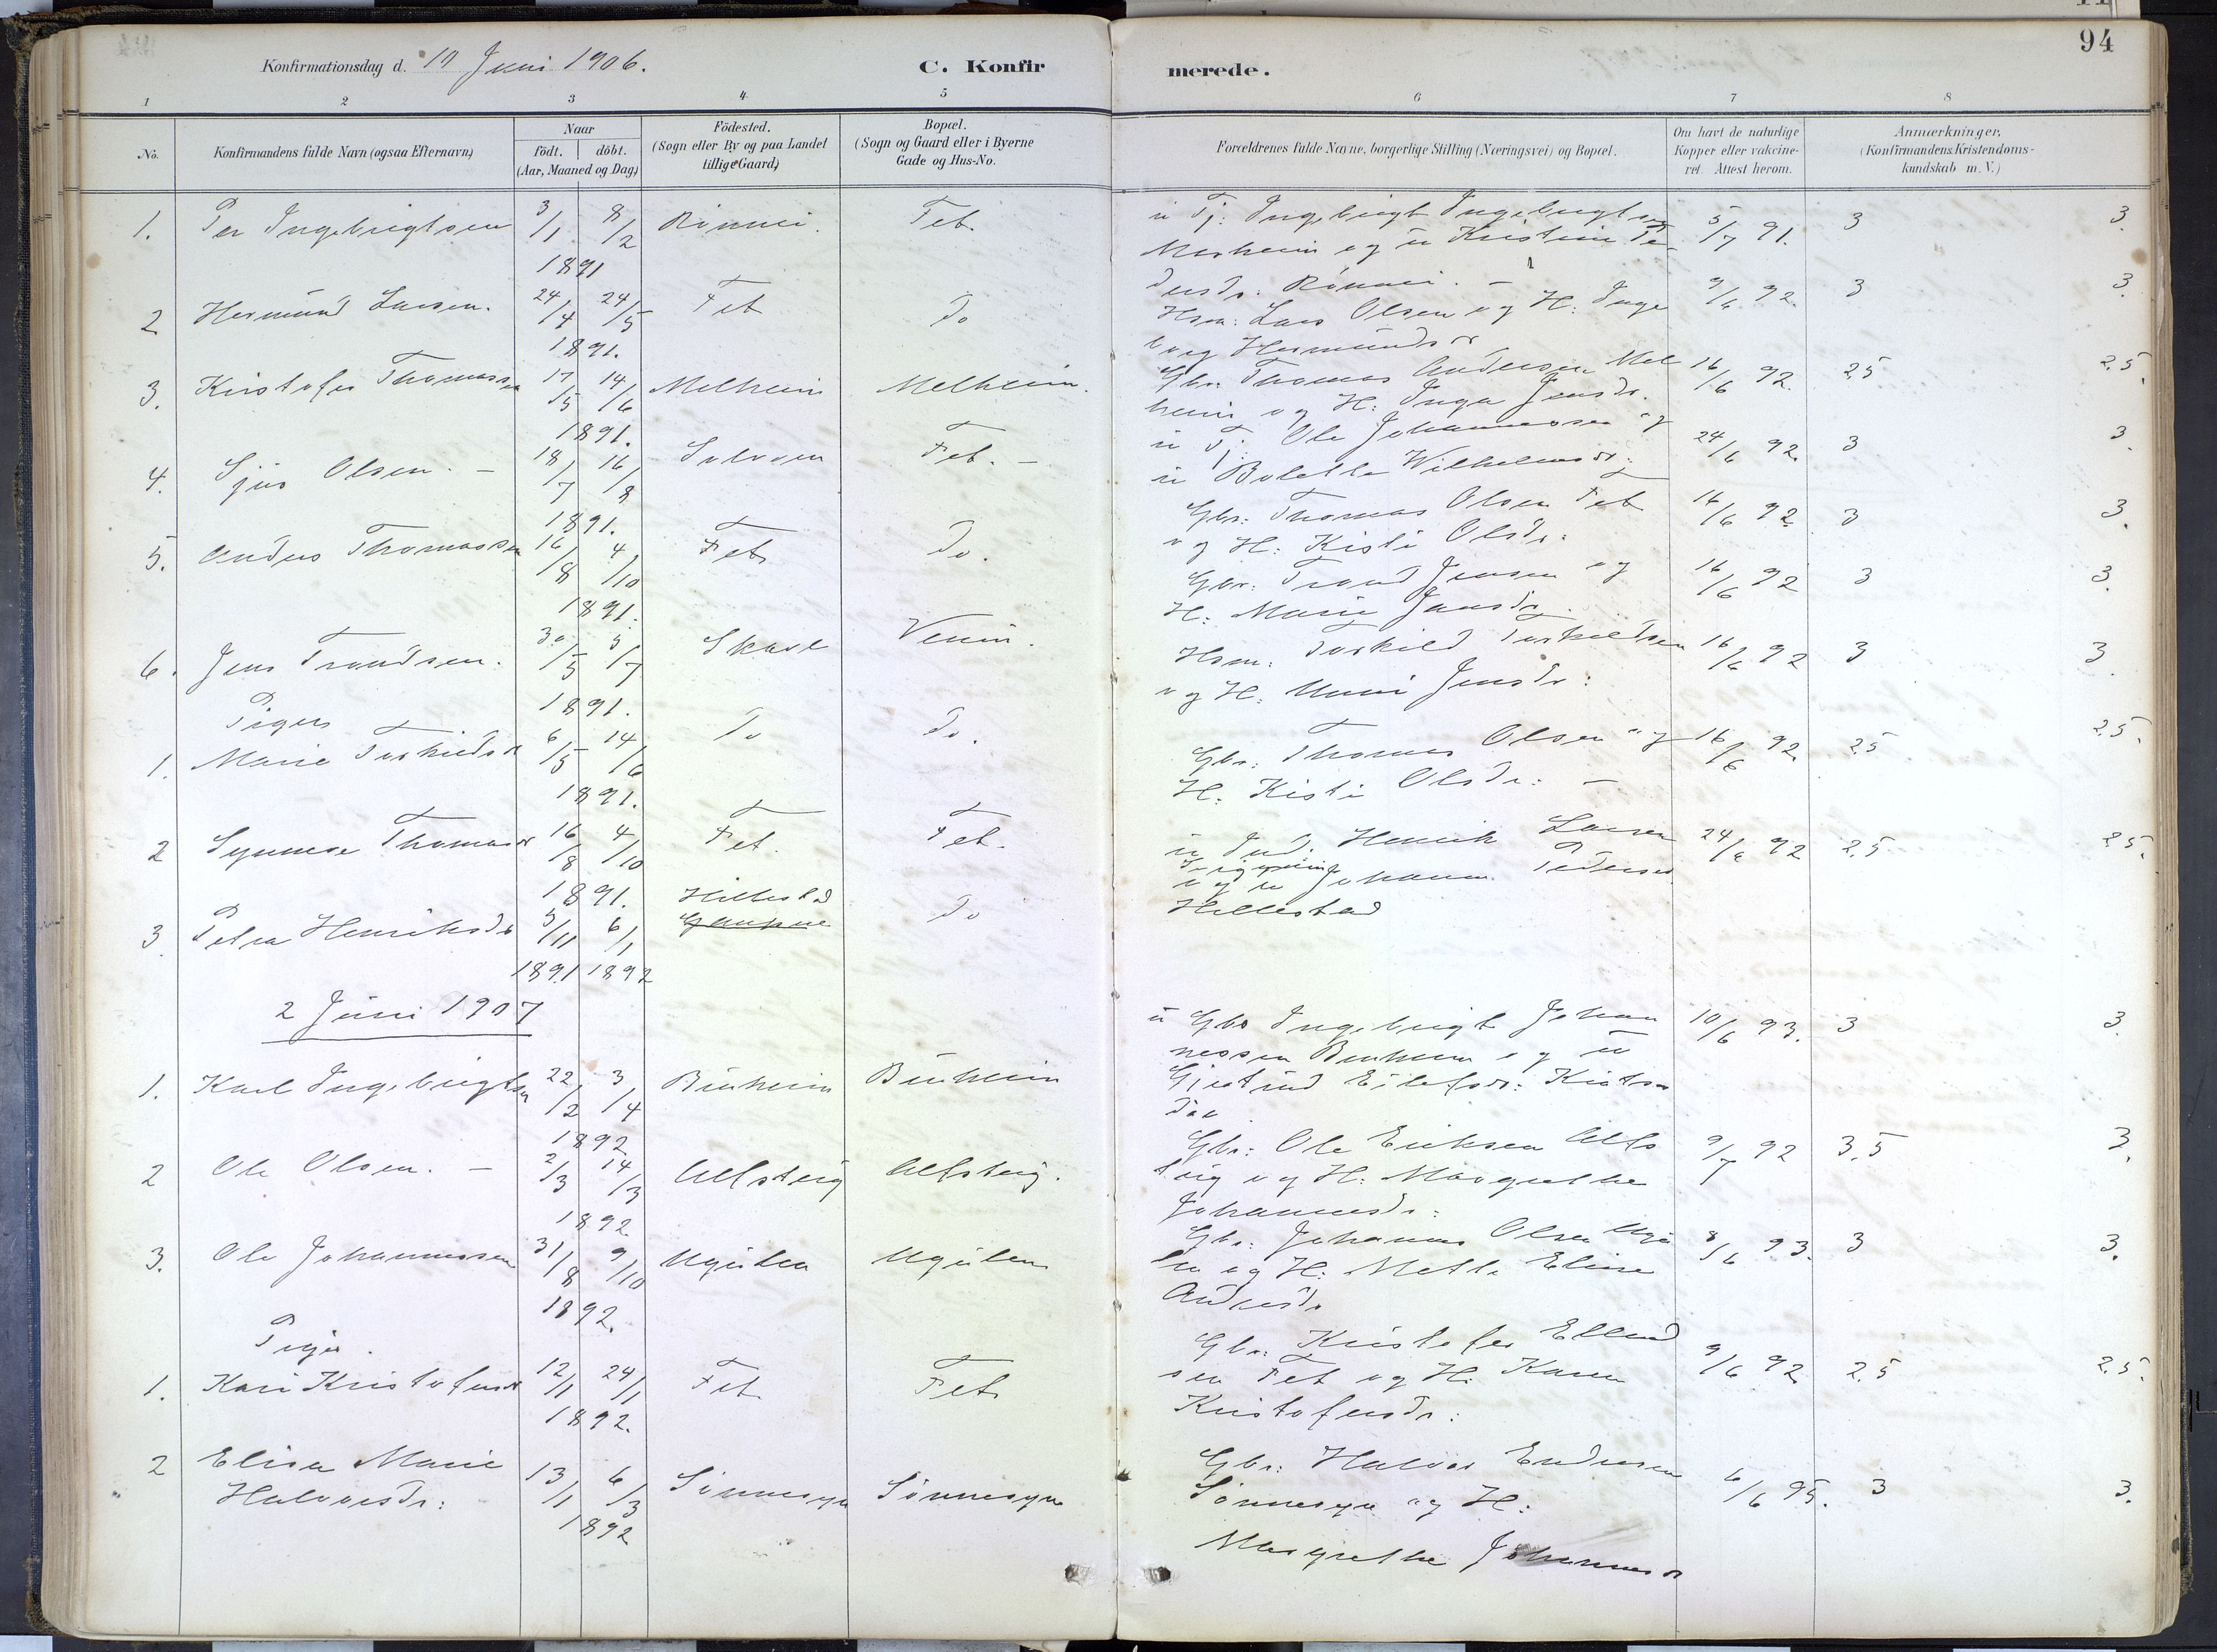 94
Konfirmationsdag d. 10 Juni 1906.
C. Konfir merede.
1 2 3 4 5 6 7 8
No.
Konfirmandens fulde Navn (ogsaa Efternavn)
Naar
födt. döbt.
(Aar, Maaned og Dag)
Födested.
(Sogn eller By og paa Landet
tillige Gaard)
Bopæl.
(Sogn og Gaard eller i Byerne
Gade og Hus-No.
Forældrenes fulde Navne, borgerlige Stilling (Næringsvei) og Bopæl.
Om havt de naturlige
Kopper eller vakcine-
ret. Attest herom.
Anmærkninger.
(Konfirmandens Kristendoms-
kundskab m. V.)
1. Per Ingebrigtsen 3/1 8/2 Rönnei. Fet. u Tj: Ingebrigt Ingebrigtsen 5/7 91. 3 3.
1891 Morheim og u Kristine Pe
dersdr. Rönnei. -
2 Hermund Larsen. 24/4 24/5 Fet Do Hsm: Lars Olsen og H: Inge 9/6 92. 3 3.
1891. borg Hermundsdr
3. Kristofer Thomassen 17/5 14/6 Melheim Melheim. Gbr: Thomas Andersen Mel 16/6 92. 25 2.5.
1891. heim og H: Inga Jensdr.
4. Sjur Olsen. - 18/7 16/8 Solvorn Fet. - u Tj: Ole Johannessen og 24/6 92. 3 3.
1891. u Bolette Wilhelmsdr:
5. Anders Thomassen 16/8 4/10 Fet Do. Gbr: Thomas Olsen Fet 16/6 92. 3 3.
1891. og H: Kisti Olsdr:
6. Jens Trondsen. 30/5 5/7 Skare Venim. Gbr: Trond Jensen og 16/6 92 3 3.
1891. H: Marie Jensdr.
Piger
1. Marie Torkildsdr 6/5 14/6 Do Do. Hsm: Torkild Torkildsen 16/6 92 3 3.
1891. og H: Unni Jensdr:
2 Synneve Thomasdr 16/8 4/10 Fet. Fet. Gbr: Thomas Olsen og 16/6 92. 25 2.5.
1891. H: Kisti Olsdr: -
3 Petra Henriksdr 3/11 6/1 Hillestad Do u Ind. Henrik Larsen 24/6 92 2.5 25.
1891 1892 Gaupne og u Johanne Pedersdr.
Hillestad
2 Juni 1907
1. Karl Ingebrigtsen 22/2 3/4 Buheim Buheim u Gbr Ingebrigt Johan 10/6 93. 3 3.
1892 nessen Buheim og u
Gjertrud Eilefsdr:
2 Ole Olsen. - 2/3 14/3 Alsteig Alsteig. Gbr: Ole Eriksen Als 9/7 92 3.5 3.
1892 teig og H: Margrethe
Johannesdr:
3. Ole Johannessen 31/8 9/10 Ugulen Ugulen Gbr: Johannes Olsen Ugu 8/6 93. 3 3.
1892. len og H: Mette Eline
Andersdr
Piger.
1. Kari Kristofersdr 12/1 24/1 Fet Fet Gbr: Kristofer Ellend 9/6 92 2.5 2.5.
1892. sen Fet og H: Karen
Kristofersdr:
2 Elisa Marie
Halvorsdr: 13/1 6/3 Sönnesyn Sönnesyn Gbr: Halvor Endresen 6/6 95. 3 3.
1892 Sönnesyn og H:
Margrethe Johannesdr